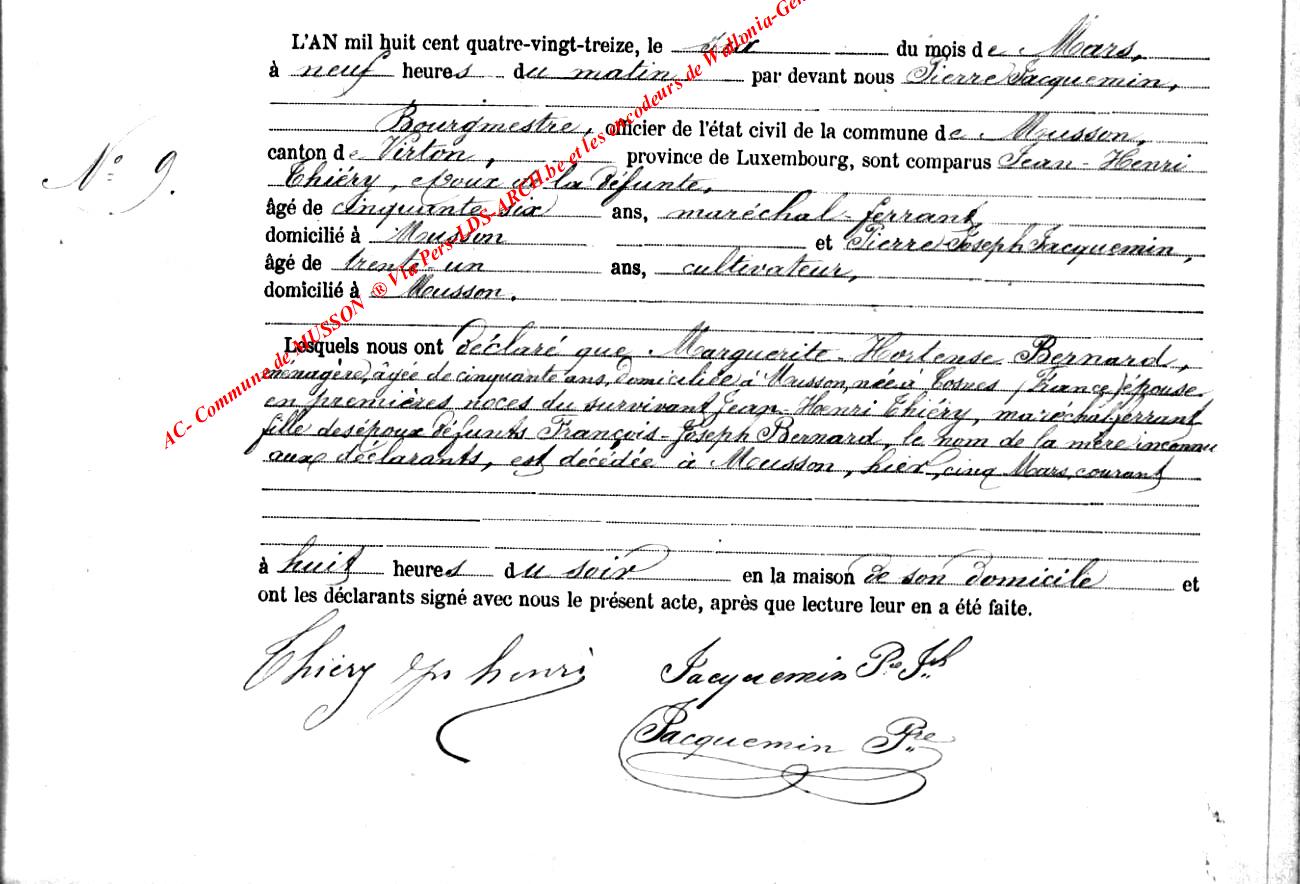 L'AN mil huit cent quatre-vingt-treize, le six du mois de Mars,
à neuf heures du matin par devant nous Pierre Jacquemin,
Bourgmestre, officier de l'état civil de la commune de Musson,
N° 9.
canton de Virton, province de Luxembourg, sont comparus Jean-Henri
Thiéry, époux de la défunte,
âgé de cinquante six ans, maréchal-ferrant
domicilié à Musson et Pierre Joseph Jacquemin,
âgé de trente-un ans, cultivateur,
domicilié à Musson.
Lesquels nous ont déclaré que Marguerite-Hortense Bernard,
ménagère, âgée de cinquante ans, domiciliée à Musson, née à Cosnes (France) épouse
en premières noces du survivant Jean-Henri Thiéry, maréchal ferrant
fille des époux défunts François-Joseph Bernard, le nom de la mère inconnu
aux déclarants, est décédée à Musson, hier, cinq Mars courant
à huit heures du soir en la maison de son domicile et
ont les déclarants signé avec nous le présent acte, après que lecture leur en a été faite.
Thiéry henri Jacquemin Pre Jh
Jacquemin Pre
AC- Commune de MUSSON ® Via Pers-LDS-ARCH.be et les encodeurs de Wallonia-Gen